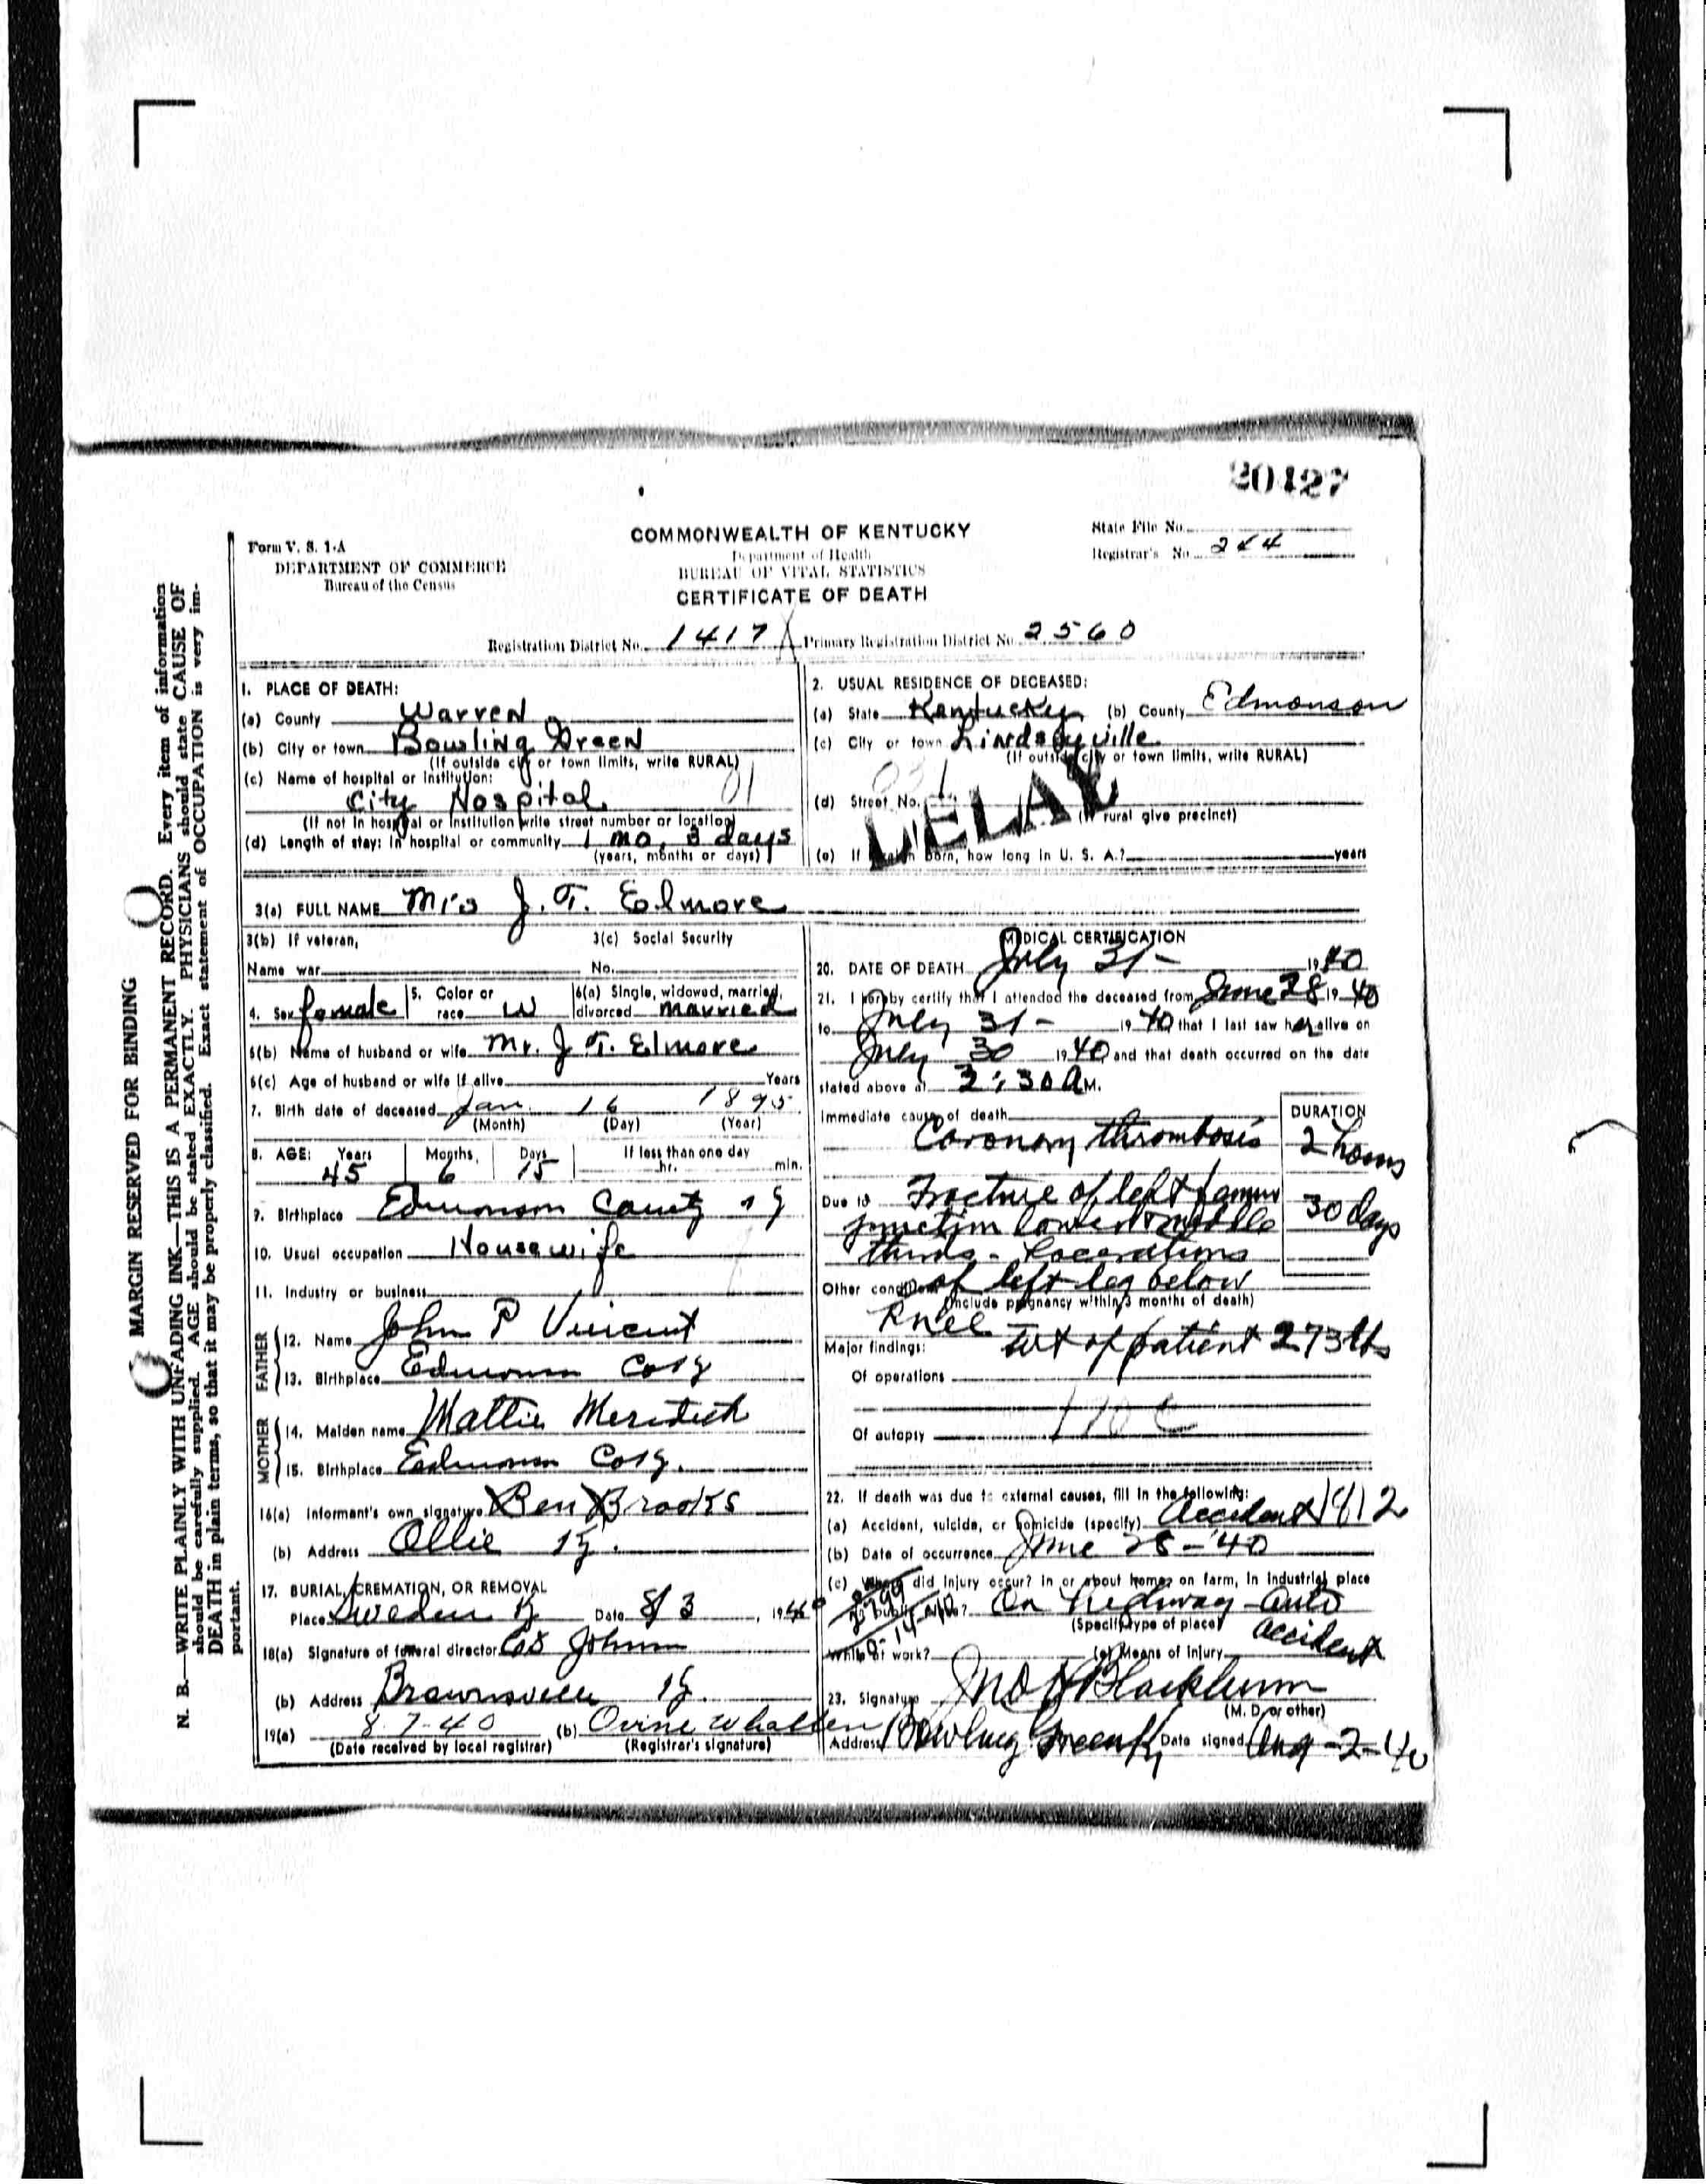 20427
Form V. S. 1-A
DEPARTMENT OF COMMERCE
Bureau of the Census
COMMONWEALTH OF KENTUCKY
Department of Health
BUREAU OF VITAL STATISTICS
CERTIFICATE OF DEATH
State File No.
Registrar's No. 244
Registration District No. 1417 Primary Registration District No. 2560
MARGIN RESERVED FOR BINDING
N. B.—WRITE PLAINLY WITH UNFADING INK—THIS IS A PERMANENT RECORD. Every item of information
should be carefully supplied. AGE should be stated EXACTLY. PHYSICIANS should state CAUSE OF
DEATH in plain terms, so that it may be properly classified. Exact statement of OCCUPATION is very im-
portant.
1. PLACE OF DEATH:
(a) County Warren
(b) City or town Bowling Green
(If outside city or town limits, write RURAL)
(c) Name of hospital or institution:
City Hospital
(If not in hospital or institution write street number or location)
(d) Length of stay: In hospital or community 1 mo, 3 days
(years, months or days)
2. USUAL RESIDENCE OF DECEASED:
(a) State Kentucky (b) County Edmonson
(c) City or town Lindseyville
(If outside city or town limits, write RURAL)
(d) Street No.
(If rural give precinct)
DELAY
(e) If foreign born, how long in U. S. A.? years
3(a) FULL NAME Mrs J. T. Elmore
3(b) If veteran,
Name war
3(c) Social Security
No.
4. Sex female 5. Color or race W 6(a) Single, widowed, married, divorced married
6(b) Name of husband or wife Mr. J. T. Elmore
6(c) Age of husband or wife if alive Years
7. Birth date of deceased Jan. 16 1895
(Month) (Day) (Year)
8. AGE: Years Months Days If less than one day
45 6 15 hr. min.
9. Birthplace Edmonson County Ky
10. Usual occupation Housewife
11. Industry or business
FATHER
12. Name John P Vincent
13. Birthplace Edmonson Co Ky
MOTHER
14. Maiden name Mattie Meredith
15. Birthplace Edmonson Co Ky.
16(a) Informant's own signature Ben Brooks
(b) Address Ollie Ky.
17. BURIAL, CREMATION, OR REMOVAL
Place Sweden Ky Date 8/3, 1940
18(a) Signature of funeral director Johnson
(b) Address Brownsville Ky.
19(a) 8-7-40 (b) Ovine Whallen
(Date received by local registrar) (Registrar's signature)
MEDICAL CERTIFICATION
20. DATE OF DEATH July 31- 1940
21. I hereby certify that I attended the deceased from June 28 1940
to July 31- 1940 that I last saw her alive on
July 30 1940 and that death occurred on the date
stated above at 2:30 A M.
Immediate cause of death
DURATION
Coronary thrombosis 2 hours
Due to Fracture of left femur 30 days
junction lower & middle
thirds - Lacerations
Other conditions of left leg below
(Include pregnancy within 3 months of death)
Knee
Major findings: wt of patient 273 lbs
Of operations
170 C
Of autopsy
22. If death was due to external causes, fill in the following:
(a) Accident, suicide, or homicide (specify) Accident 1812
(b) Date of occurrence June 28-'40
(c) Where did injury occur? In or about home, on farm, in industrial place
in public place? On Highway - Auto
(Specify type of place) accident
While at work? (e) Means of injury
23. Signature Jno H Blackburn
(M. D. or other)
Address Bowling Green Ky Date signed Aug-2-40